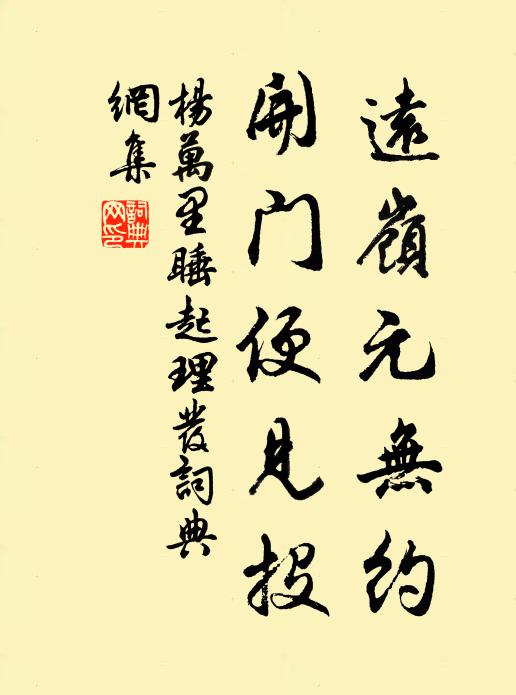 遠嶺元無約
開門便見投
楊萬里睡起理發詞典
網集
詞典網印